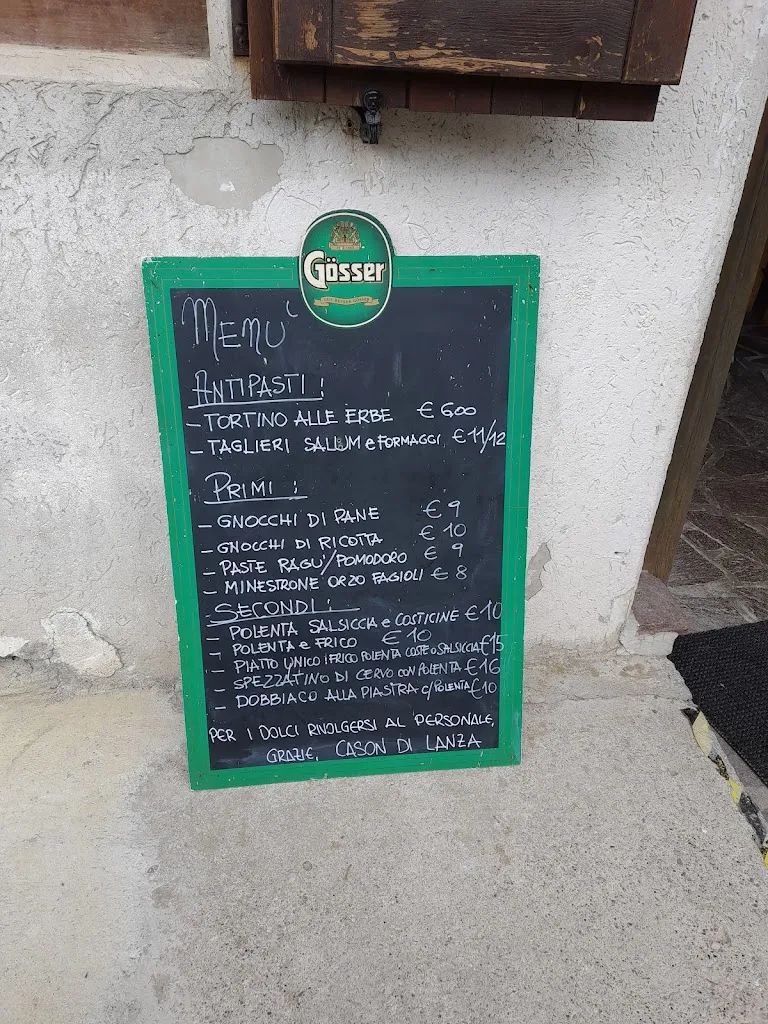 Gösser
MENÙ
ANTIPASTI:
- TORTINO ALLE ERBE € 600
- TAGLIERI SALUM e FORMAGGI € 11/12
PRIMI:
- GNOCCHI DI PANE € 9
- GNOCCHI DI RICOTTA € 10
- PASTE RAGU'/POMODORO € 9
- MINESTRONE ORZO FAGIOLI € 8
SECONDI:
- POLENTA SALSICCIA e COSTICINE € 10
- POLENTA e FRICO € 10
- PIATTO UNICO: FRICO POLENTA COSTE o SALSICCIA € 15
- SPEZZATINO DI CERVO CON POLENTA € 16
- DOBBIACO ALLA PIASTRA c/POLENTA € 10
PER I DOLCI RIVOLGERSI AL PERSONALE,
GRAZIE, CASON DI LANZA